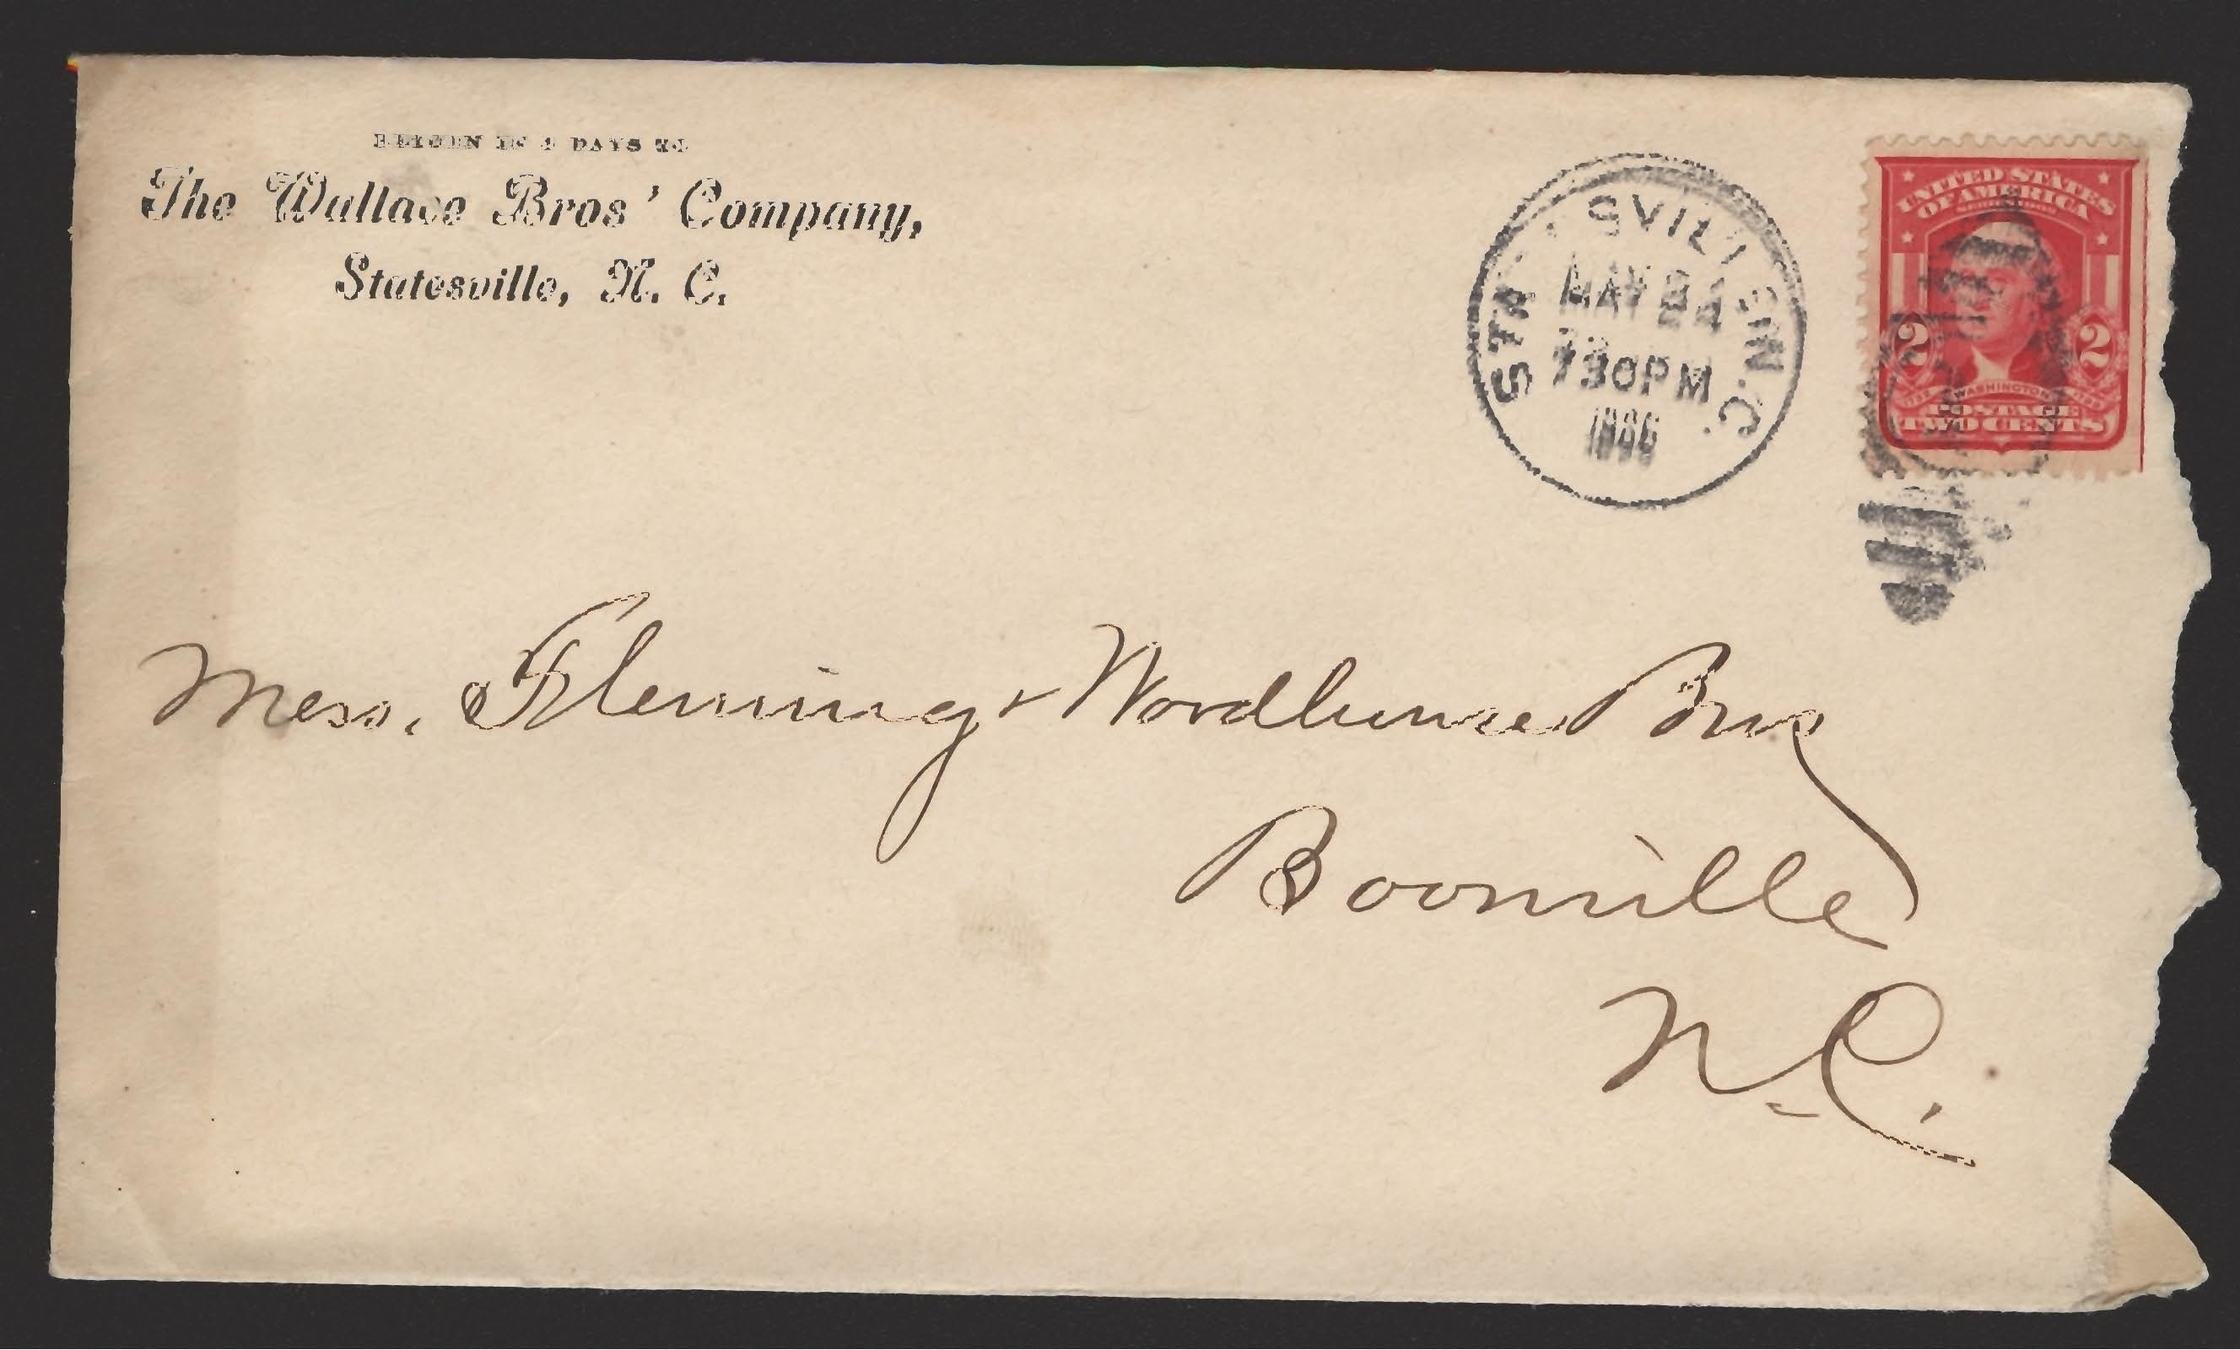 RETURN IN 5 DAYS TO
The Wallace Bros' Company,
Statesville, N. C.
STATESVILLE N.C.
MAY 24
730PM
1906
UNITED STATES
OF AMERICA
2 2
WASHINGTON
POSTAGE
TWO CENTS
Mess. Fleming & Woodhouse Bros
Boonville
N.C.